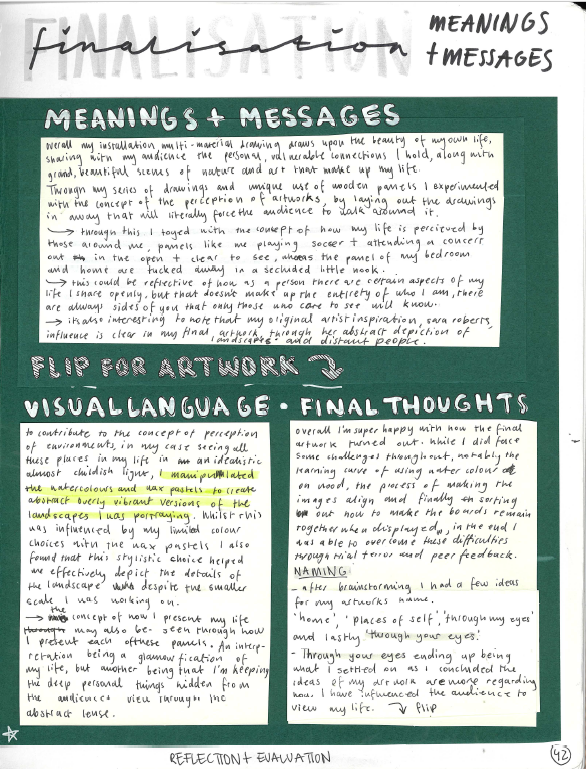 FINALISATION
finalisation
MEANINGS
+ MESSAGES
MEANINGS + MESSAGES
overall my installation multi-material drawing draws upon the beauty of my own life,
sharing with my audience the personal, vulnerable connections I hold, along with
grand, beautiful scenes of nature and art that make up my life.
Through my series of drawings and unique use of wooden panels I experimented
with the concept of the perception of artworks, by laying out the drawings
in away that will literally force the audience to walk around it.
→ through this I toyed with the concept of how my life is percieved by
those around me, panels like me playing soccer + attending a concert
out in the open + clear to see, whereas the panel of my bedroom
and home are tucked away in a secluded little nook.
→ this could be reflective of how as a person there are certain aspects of my
life I share openly, but that doesn't make up the entirety of who I am, there
are always sides of you that only those who care to see will know.
→ its also interesting to note that my original artist inspiration, sara roberts,
influence is clear in my final artwork, through her abstract depiction of
landscapes and distant people.
FLIP FOR ARTWORK
VISUAL LANGUAGE • FINAL THOUGHTS
to contribute to the concept of perception
of environments, in my case seeing all
these places in my life in an idealistic
almost childish light, I manipulated
the watercolours and wax pastels to create
abstract overly vibrant versions of the
landscapes I was portraying. Whilst this
was influenced by my limited colour
choices with the wax pastels I also
found that this stylistic choice helped
me effectively depict the details of
the landscape despite the smaller
scale I was working on.
→ the concept of how I present my life
may also be seen through how
I present each of these panels. An interp-
retation being a glamourfication of
my life, but another being that I'm keeping
the deep personal things hidden from
the audiences view through the
abstract lense.
overall I'm super happy with how the final
artwork turned out. While I did face
some challenges throughout, notably the
learning curve of using water colour
on wood, the process of making the
images align and finally sorting
out how to make the boards remain
together when displayed, in the end I
was able to overcome these difficulties
through trial + error and peer feedback.
NAMING
- after brainstorming I had a few ideas
for my artworks name.
'home', 'places of self', 'through my eyes'
and lastly 'through your eyes'
- Through your eyes ending up being
what I settled on as I concluded the
ideas of my artwork are more regarding
how I have influenced the audience to
view my life. flip
REFLECTION + EVALUATION
42